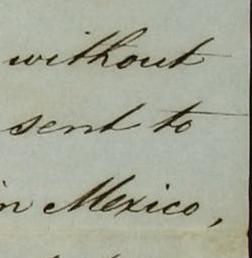 without
sent to
in Mexico,